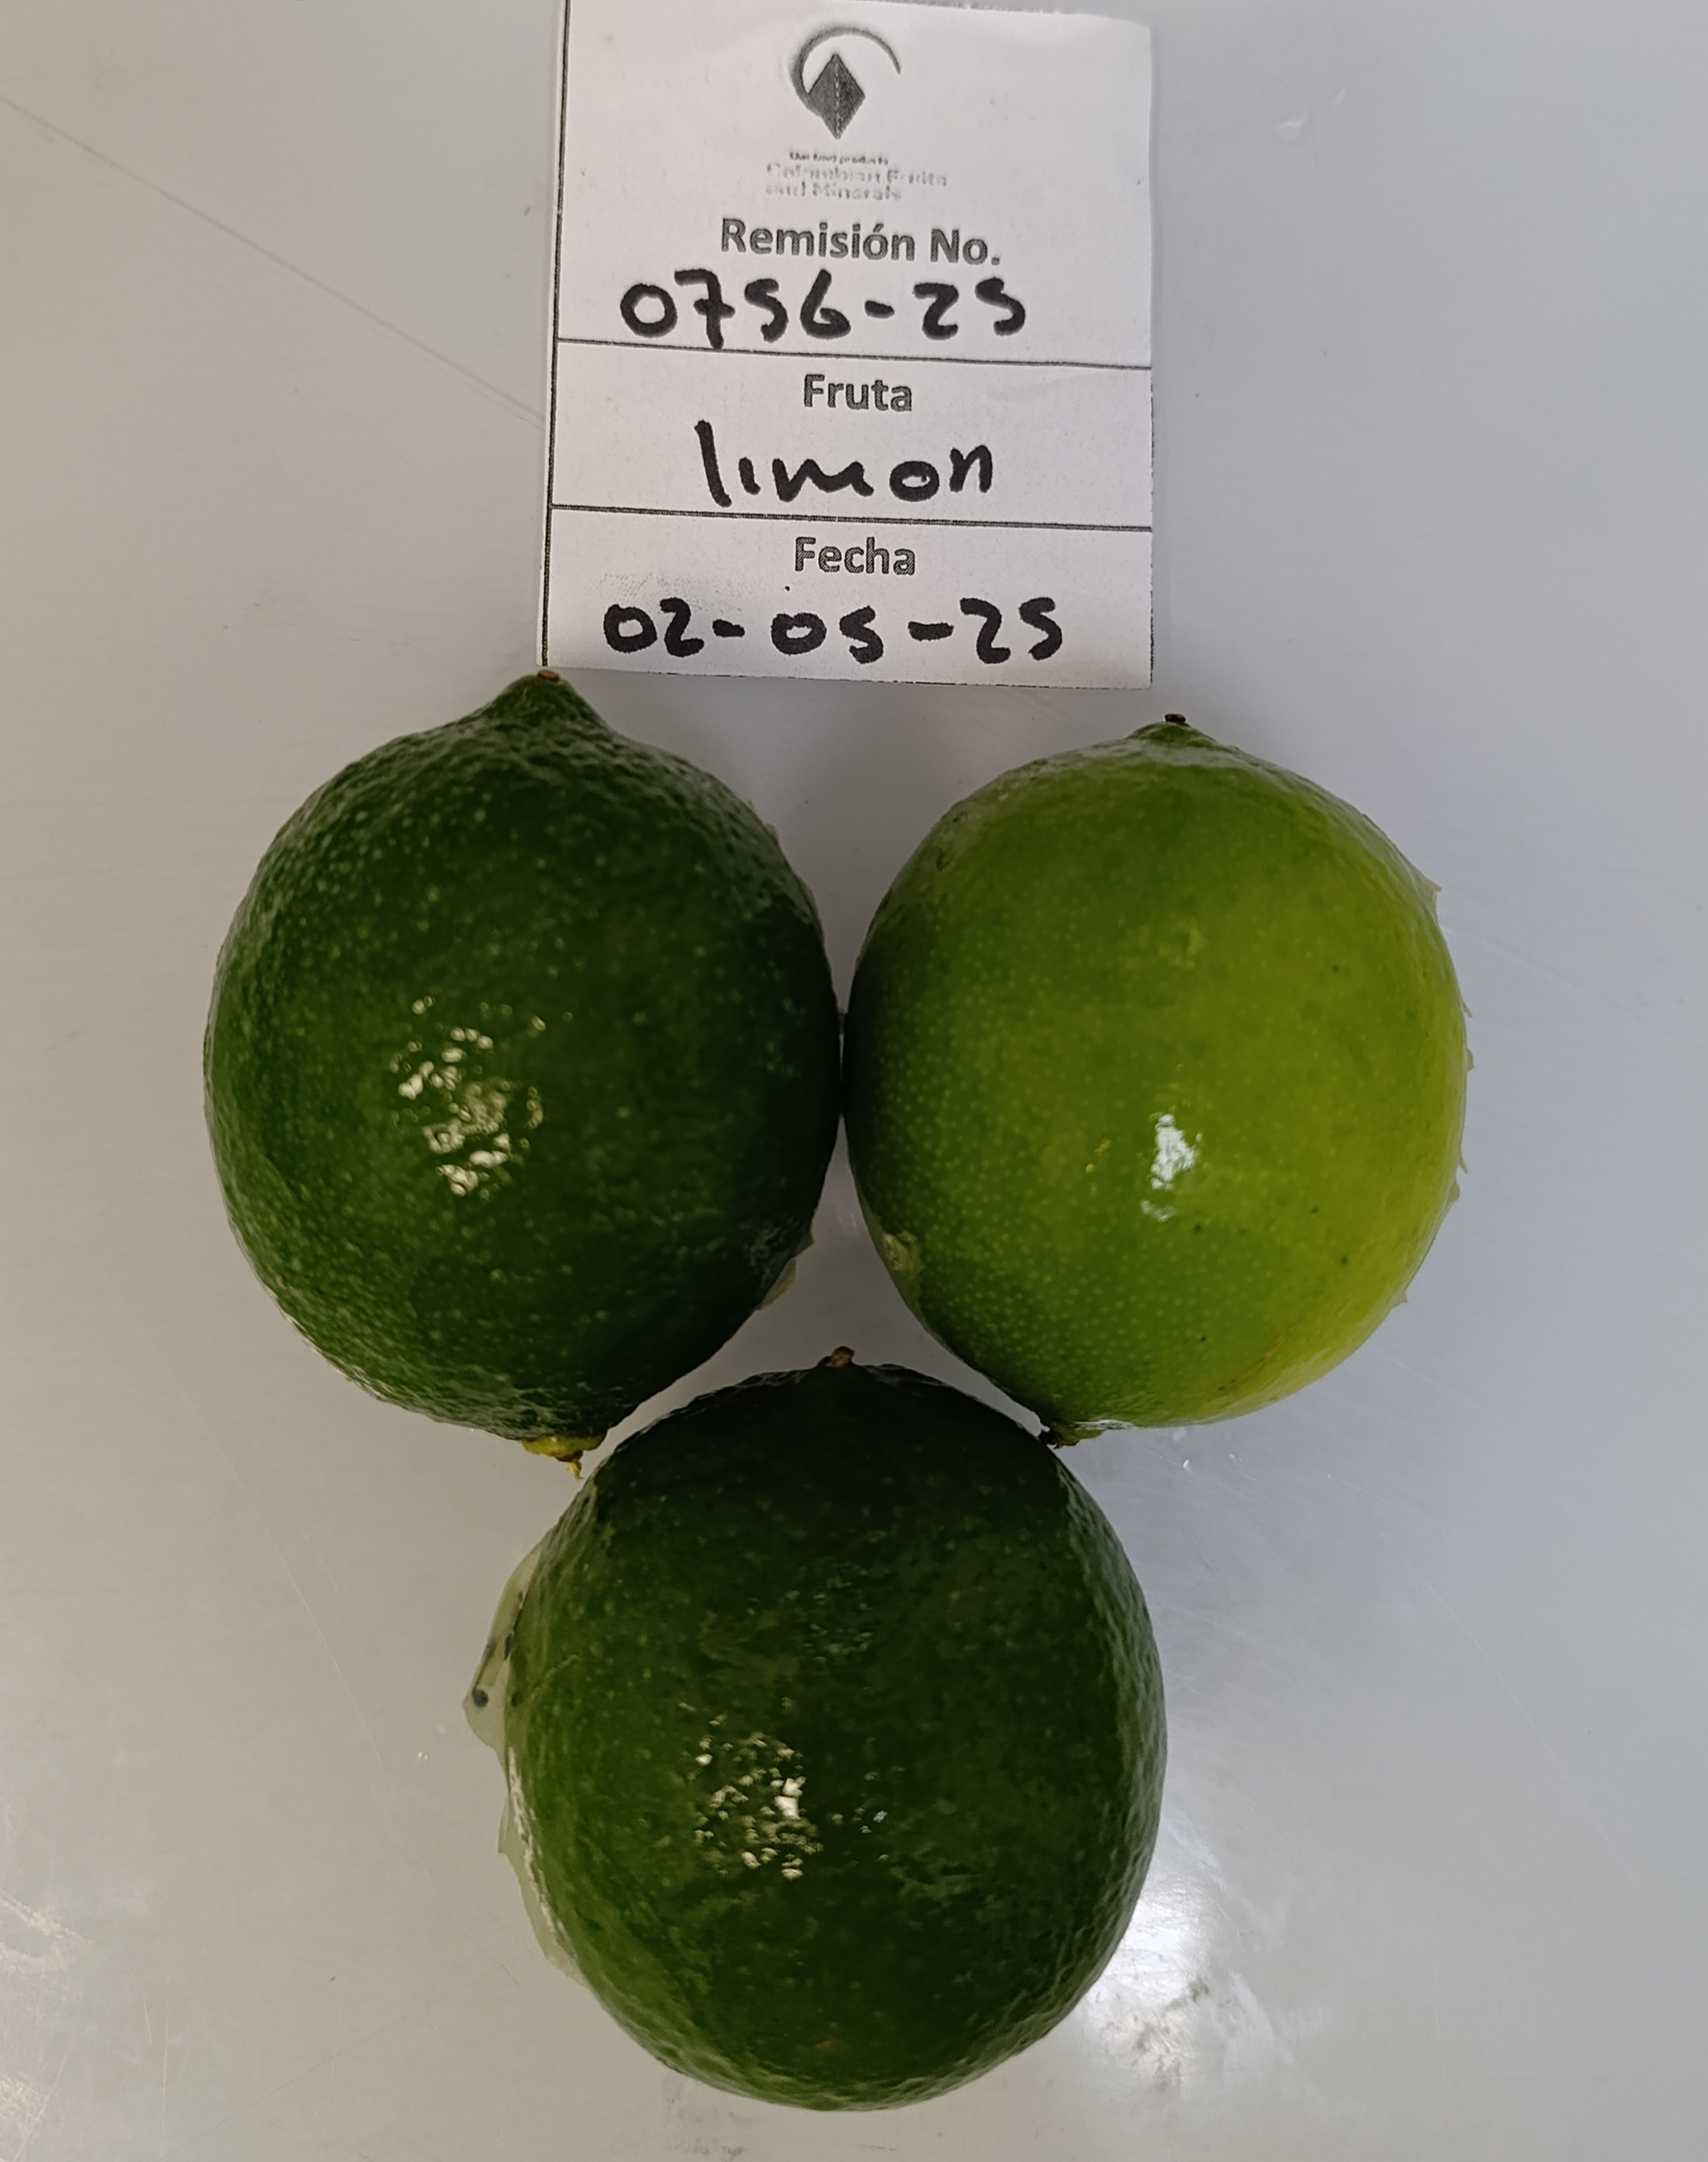 Colombian Fruits
and Minerals
Remisión No.
0756-25
Fruta
limon
Fecha
02-05-25